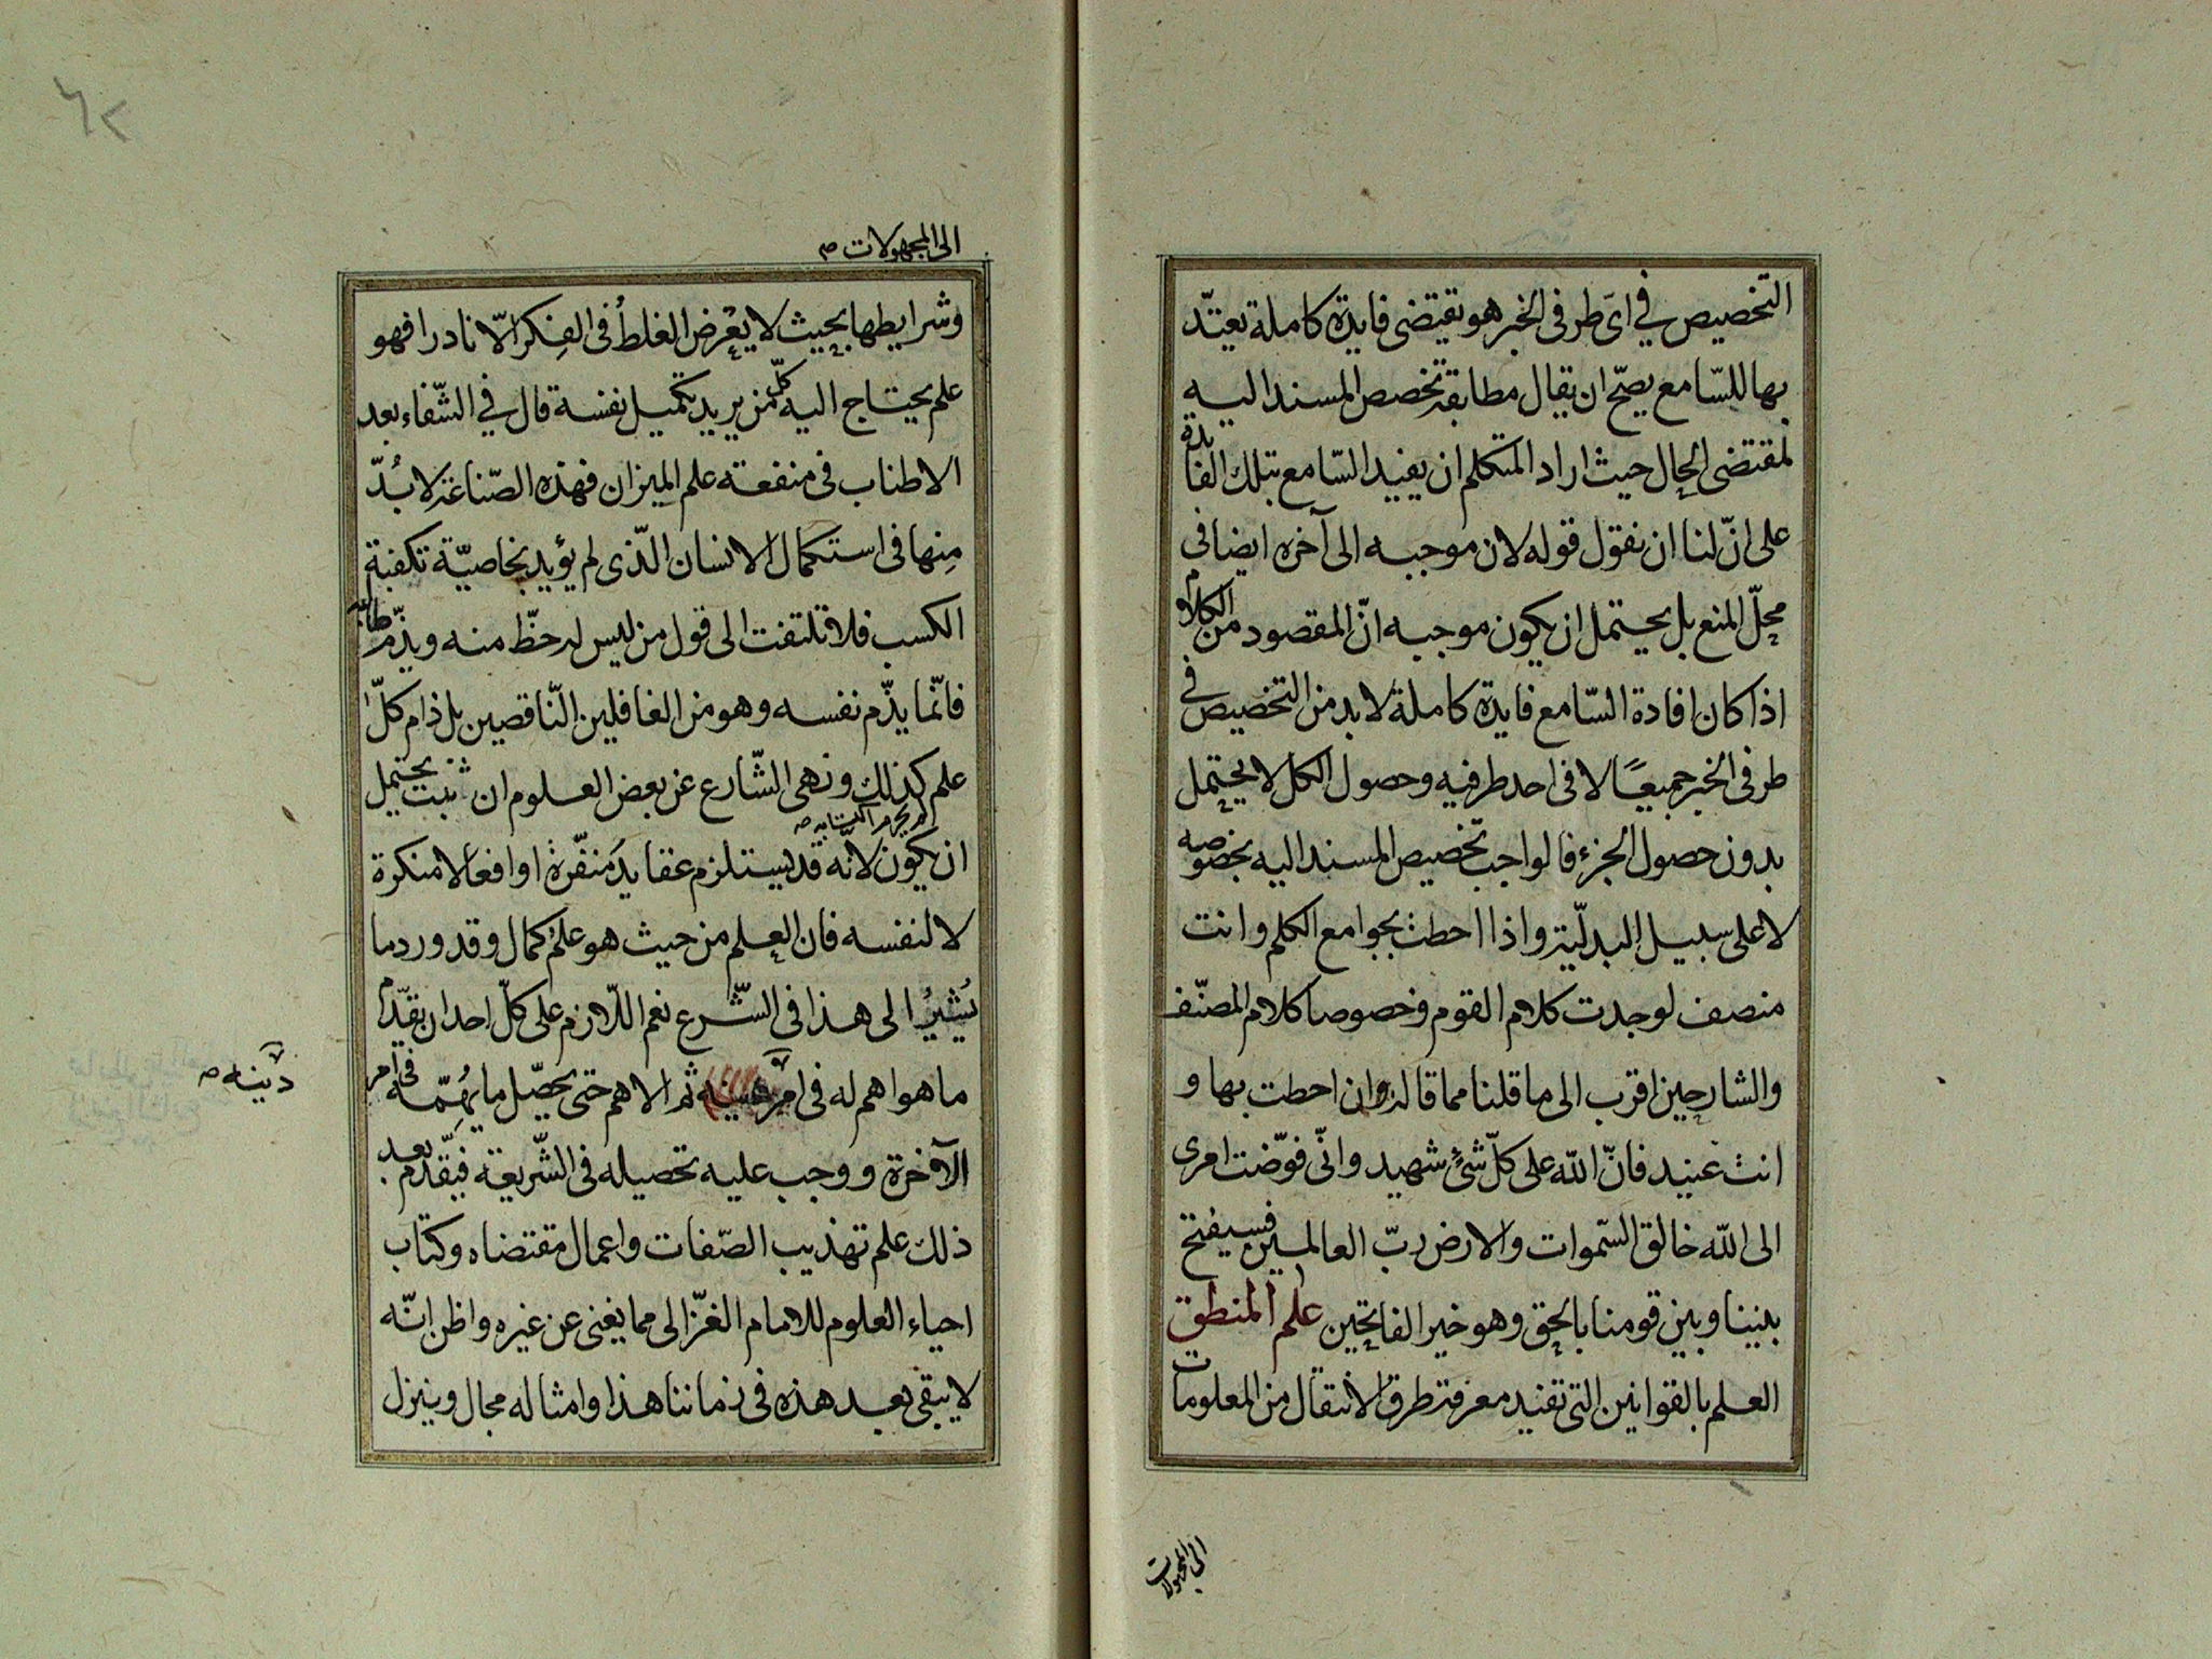 التخصيص في اىّ طرفى الخبر هو تقيتضى فايدة كاملة يعتدّ
بها للسّامع يصحّ ان يقال مطابقة تخصص المسند اليه
لمقتضى الحال حيث اراد المتكلم ان يفيد السّامع بتلك الفايدة
على انّ لنا ان نقول قوله لان موجبه الى آخره ايضا فى
محلّ المنع بل يحتمل ان يكون موجبه انّ المقصود من الكلام
اذا كان افادة السّامع فايدة كاملة لا بد من التخصيص فى
طرفى الخبر جميعًا لا فى احد طرفيه وحصول الكل لا يحتمل
بدون حصول الجزء فالواجب تخصيص المسند اليه بخصوصه
لا على سبيل البدليّة واذا احطت بجوامع الكلم وانت
منصف لوجدت كلام القوم وخصوصا كلام المصنّف
والشارحين اقرب الى ما قلنا مما قاله وان احطت بها و
انت عنيد فانّ الله على كلّ شئ شهيد وانّى فوّضت امرى
الى الله خالق السّموات والارض ربّ العالمين فسيفتح
بيننا وبين قومنا بالحق وهو خير الفاتحين علم المنطق
العلم بالقوانين التى تفيد معرفة طرق الانتقال من المعلومات
الى المجهولات
الى المجهولات صح
وشرايطها بحيث لا يعرض الغلط فى الفكر الّا نادرا فهو
علم يحتاج اليه كلّ من يريد تكميل نفسه قال في الشّفاء بعد
الاطناب فى منفعة علم الميزان فهذه الصّناعة لا بُدّ
مِنها فى استكمال الانسان الّذى لم يؤيد بخاصيّة تكفية
الكسب فلا تلتفت الى قول من ليس له حظّ منه ويذّم طالبه
فانّما يذّم نفسه وهو من الغافلين النّاقصين بل ذام كلّ
علم كذلك ونهى الشّارع عن بعض العلوم ان ثبت يحتمل
ان يكون لانّه قد يستلزم عقايد منفّرة او افعالا منكرة
لا لنفسه فان العلم من حيث هو علم كمال وقد ورد ما
يُشيرُ الى هذا فى الشّرع نعم اللّازم على كلّ احد ان يقدّم
ما هو اهم له فى امر ثم الاهم حتى يحصّل ما يُهِمّه فى امر
دينه صح
الآخرة ووجب عليه تحصيله فى الشّريعة فيقّدم بعد
ذلك علم تهذيب الصّفات واعمال مقتضاه وكتاب
احياء العلوم للامام الغّزالى مما يغنى عن غيره واظن انّه
لا يبقى بعد هذه فى زماننا هذا وامثاله مجال وينزل